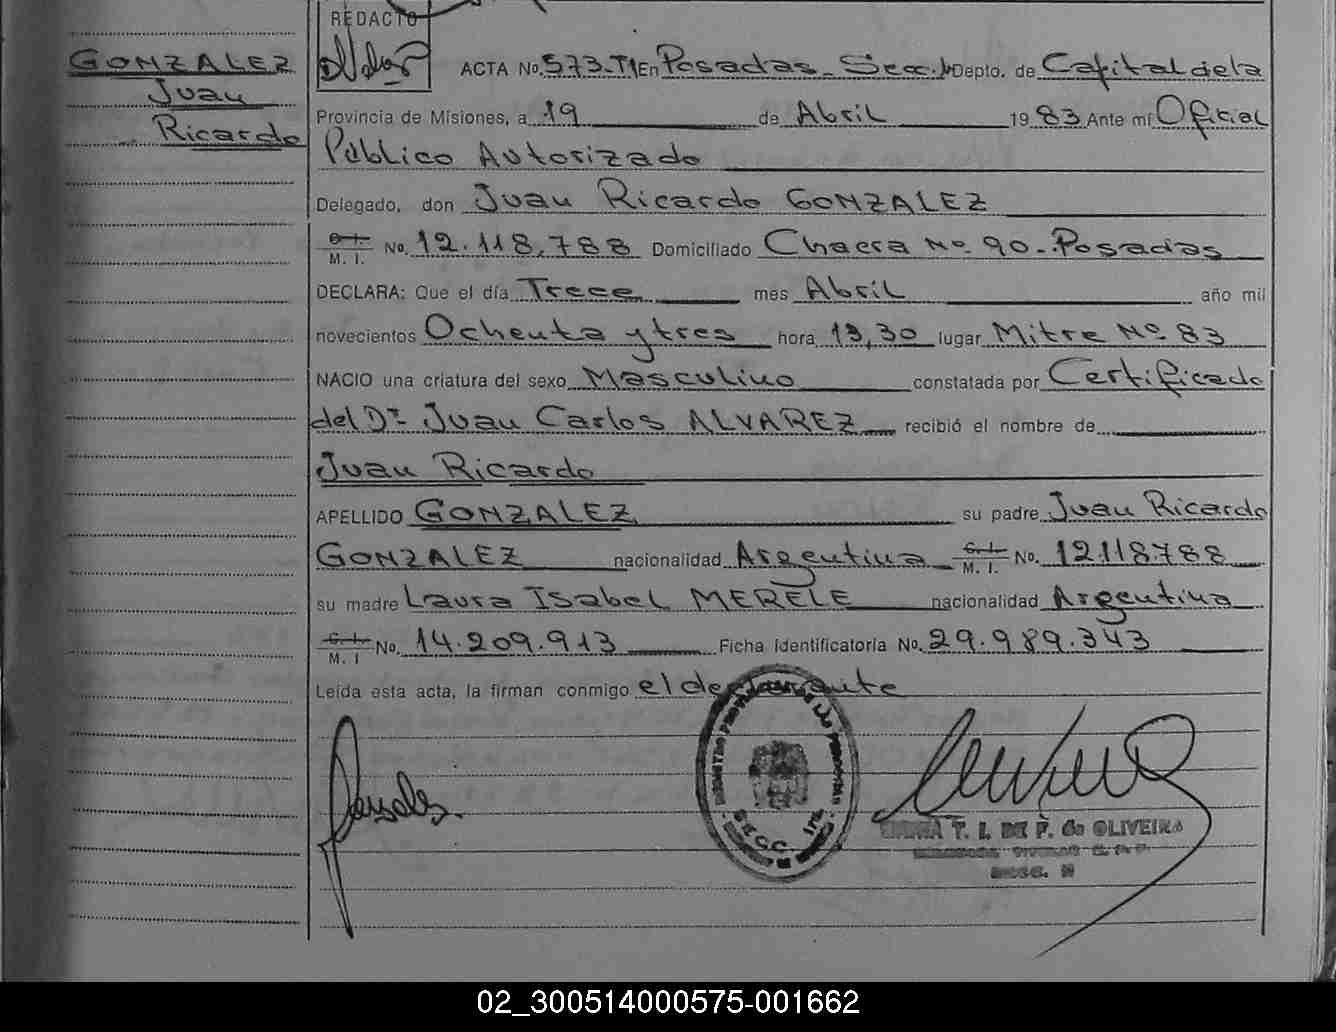 GONZALEZ
Juan
Ricardo
REDACTO
ACTA No. 573-T1 En Posadas - Secc. Depto. de Capital de la
Provincia de Misiones, a 19 de Abril 1983 Ante mí Oficial
Público Autorizado
Delegado, don Juan Ricardo GONZALEZ
C. I.
M. I. No. 12.118.788 Domiciliado Chacra Nº 90 - Posadas
DECLARA: Que el día Trece mes Abril año mil
novecientos Ochenta y tres hora 19,30 lugar Mitre Nº 83
NACIO una criatura del sexo Masculino constatada por Certificado
del Dr. Juan Carlos ALVAREZ recibió el nombre de
Juan Ricardo
APELLIDO GONZALEZ su padre Juan Ricardo
GONZALEZ nacionalidad Argentina C. I. M. I. No. 12118788
su madre Laura Isabel MERELE nacionalidad Argentina
C. I. M. I No. 14.209.913 Ficha Identificatoria No. 29.989.343
Leída esta acta, la firman conmigo el declarante
REGISTRO PROVINCIAL DE LAS PERSONAS
T. I. DE P. de OLIVEIRA
02_300514000575-001662